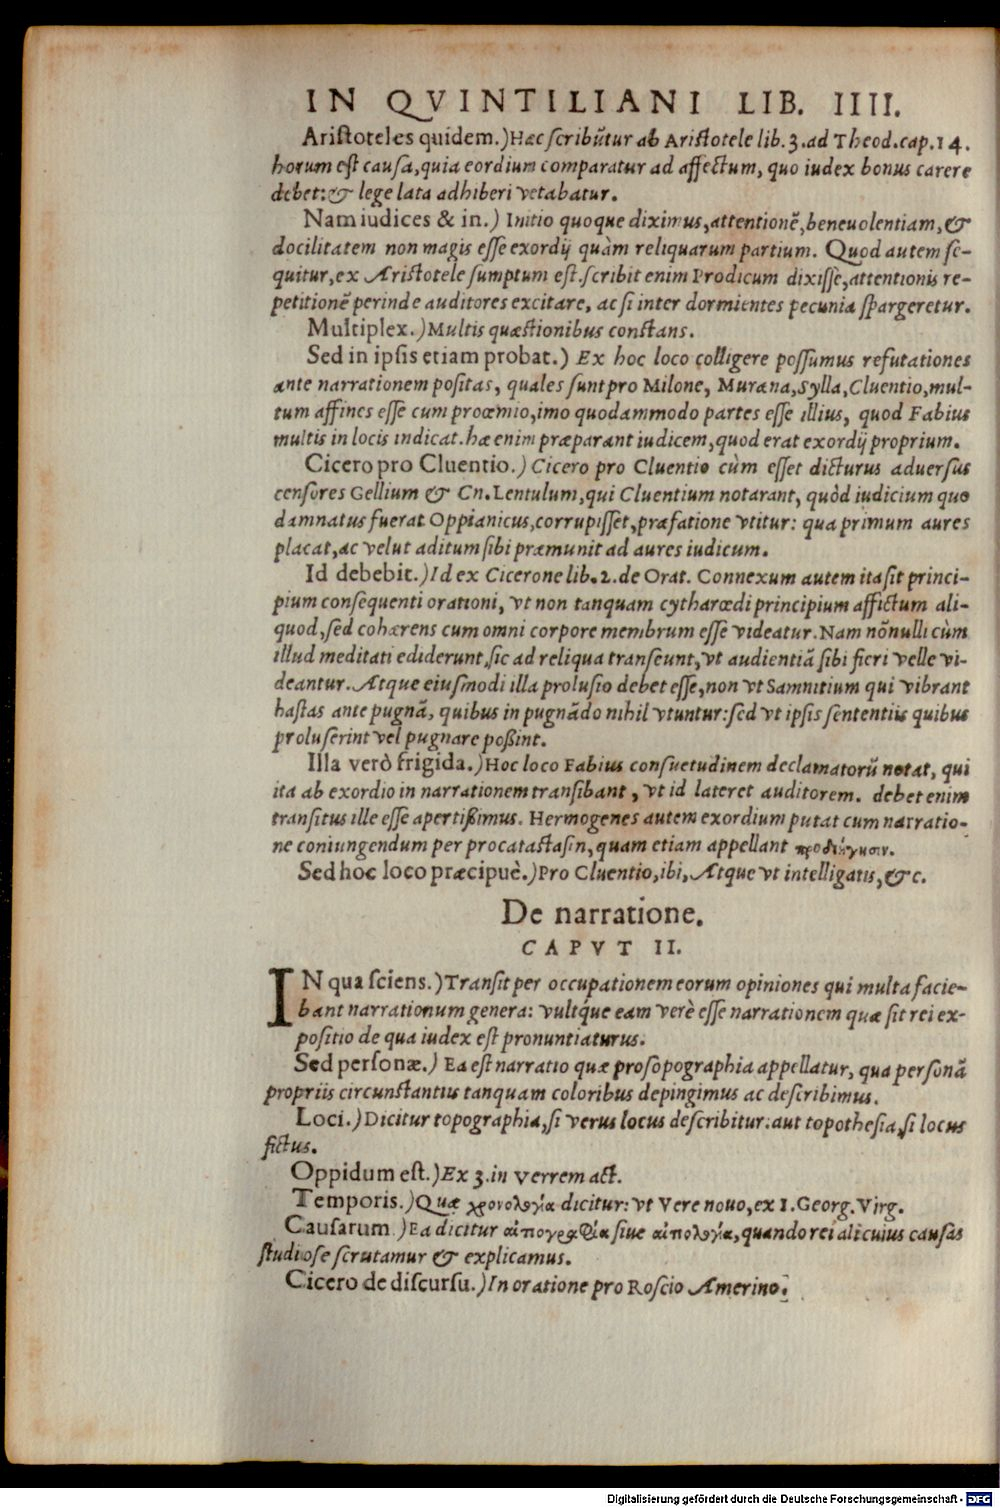 IN QVINTILIANI LIB. IIII.
Aristoteles quidem.) Hæc scribũtur ab Aristotele lib. 3. ad Theod. cap. 14.
horum est causa, quia eordium comparatur ad affectum, quo iudex bonus carere
debet: & lege lata adhiberi vetabatur.
Nam iudices & in.) Initio quoque diximus, attentionẽ, beneuolentiam, &
docilitatem non magis esse exordij quàm reliquarum partium. Quod autem se-
quitur, ex Aristotele sumptum est. scribit enim Prodicum dixisse, attentionis re-
petitionẽ perinde auditores excitare, ac si inter dormientes pecunia spargeretur.
Multiplex.) Multis quæstionibus constans.
Sed in ipsis etiam probat.) Ex hoc loco colligere possumus refutationes
ante narrationem positas, quales sunt pro Milone, Muræna, Sylla, Cluentio, mul-
tum affines esse cum proœmio, imo quodammodo partes esse illius, quod Fabius
multis in locis indicat. hæ enim præparant iudicem, quod erat exordij proprium.
Cicero pro Cluentio.) Cicero pro Cluentio cùm esset dicturus aduersus
censores Gellium & Cn. Lentulum, qui Cluentium notarant, quòd iudicium quo
damnatus fuerat Oppianicus, corrupisset, præfatione vtitur: qua primum aures
placat, ac velut aditum sibi præmunit ad aures iudicum.
Id debebit.) Id ex Cicerone lib. 2. de Orat. Connexum autem ita sit princi-
pium consequenti orationi, vt non tanquam cytharœdi principium affictum ali-
quod, sed cohærens cum omni corpore membrum esse videatur. Nam nõnulli cùm
illud meditati ediderunt, sic ad reliqua transeunt, vt audientiã sibi fieri velle vi-
deantur. Atque eiusmodi illa prolusio debet esse, non vt Samnitium qui vibrant
hastas ante pugnã, quibus in pugnãdo nihil vtuntur: sed vt ipsis sententiis quibus
proluserint vel pugnare poßint.
Illa verò frigida.) Hoc loco Fabius consuetudinem declamatorũ notat, qui
ita ab exordio in narrationem transibant, vt id lateret auditorem. debet enim
transitus ille esse apertißimus. Hermogenes autem exordium putat cum narratio-
ne coniungendum per procatastasin, quam etiam appellant προδιήγησιν.
Sed hoc loco præcipuè.) Pro Cluentio, ibi, Atque vt intelligatis, &c.
De narratione.
CAPVT II.
IN qua sciens.) Transit per occupationem eorum opiniones qui multa facie-
bant narrationum genera: vultq́ue eam verè esse narrationem quæ sit rei ex-
positio de qua iudex est pronuntiaturus.
Sed personæ.) Ea est narratio quæ prosopographia appellatur, qua personã
propriis circunstantiis tanquam coloribus depingimus ac describimus.
Loci.) Dicitur topographia, si verus locus describitur: aut topothesia, si locus
fictus.
Oppidum est.) Ex 3. in Verrem act.
Temporis.) Quæ χρονολογία dicitur: vt Vere nouo, ex 1. Georg. Virg.
Causarum.) Ea dicitur αἰπογραφία siue αἰπολογία, quando rei alicuius causas
studiose scrutamur & explicamus.
Cicero de discursu.) In oratione pro Roscio Amerino.
Digitalisierung gefördert durch die Deutsche Forschungsgemeinschaft - DFG